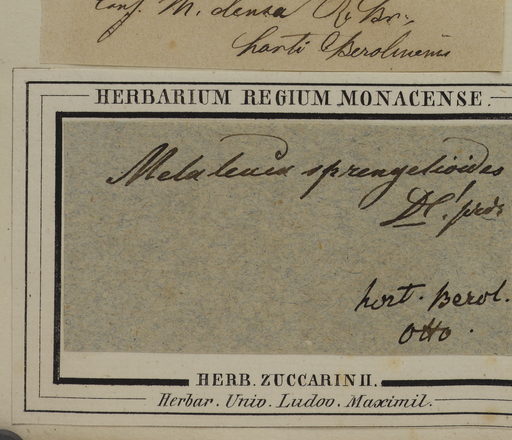 conf. M. densa R. Br.
horti Berolinensis
HERBARIUM REGIUM MONACENSE.
Melaleuca sprengelioides
DC.! prdr
hort. Berol.
Otto.
HERB. ZUCCARINII.
Herbar. Univ. Ludov. Maximil.